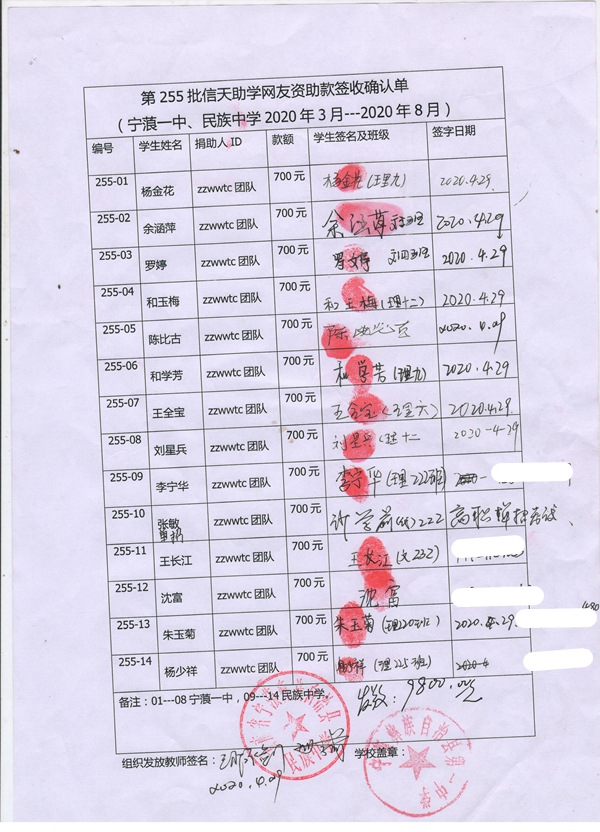 第 255 批信天助学网友资助款签收确认单
（宁蒗一中、民族中学 2020 年 3 月---2020 年 8 月）
编号 学生姓名 捐助人 ID 款额 学生签名及班级 签字日期
255-01 杨金花 zzwwtc 团队 700 元 杨金花(理九) 2020.4.29
255-02 余涵萍 zzwwtc 团队 700 元 2020.4.29
255-03 罗婷 zzwwtc 团队 700 元 2020.4.29
255-04 和玉梅 zzwwtc 团队 700 元 和玉梅(理十二) 2020.4.29
255-05 陈比古 zzwwtc 团队 700 元 2020.4.29
255-06 和学芳 zzwwtc 团队 700 元 和学芳(理九) 2020.4.29
255-07 王全宝 zzwwtc 团队 700 元 王全宝(理六) 2020.4.29.
255-08 刘星兵 zzwwtc 团队 700 元 刘星兵(理十二 2020-4-29
255-09 李宁华 zzwwtc 团队 700 元 李宁华(理222班)
255-10 张敏 zzwwtc 团队 700 元 222 高职单招
255-11 王长江 zzwwtc 团队 700 元 王长江(文232)
255-12 沈富 zzwwtc 团队 700 元 沈富
255-13 朱玉菊 zzwwtc 团队 700 元 朱玉菊(理220班) 2020.4.29.
255-14 杨少祥 zzwwtc 团队 700 元 杨少祥(理225班)
备注：01---08 宁蒗一中，09---14 民族中学。 发放：9800.00元
组织发放教师签名： 学校盖章：
2020.4.29